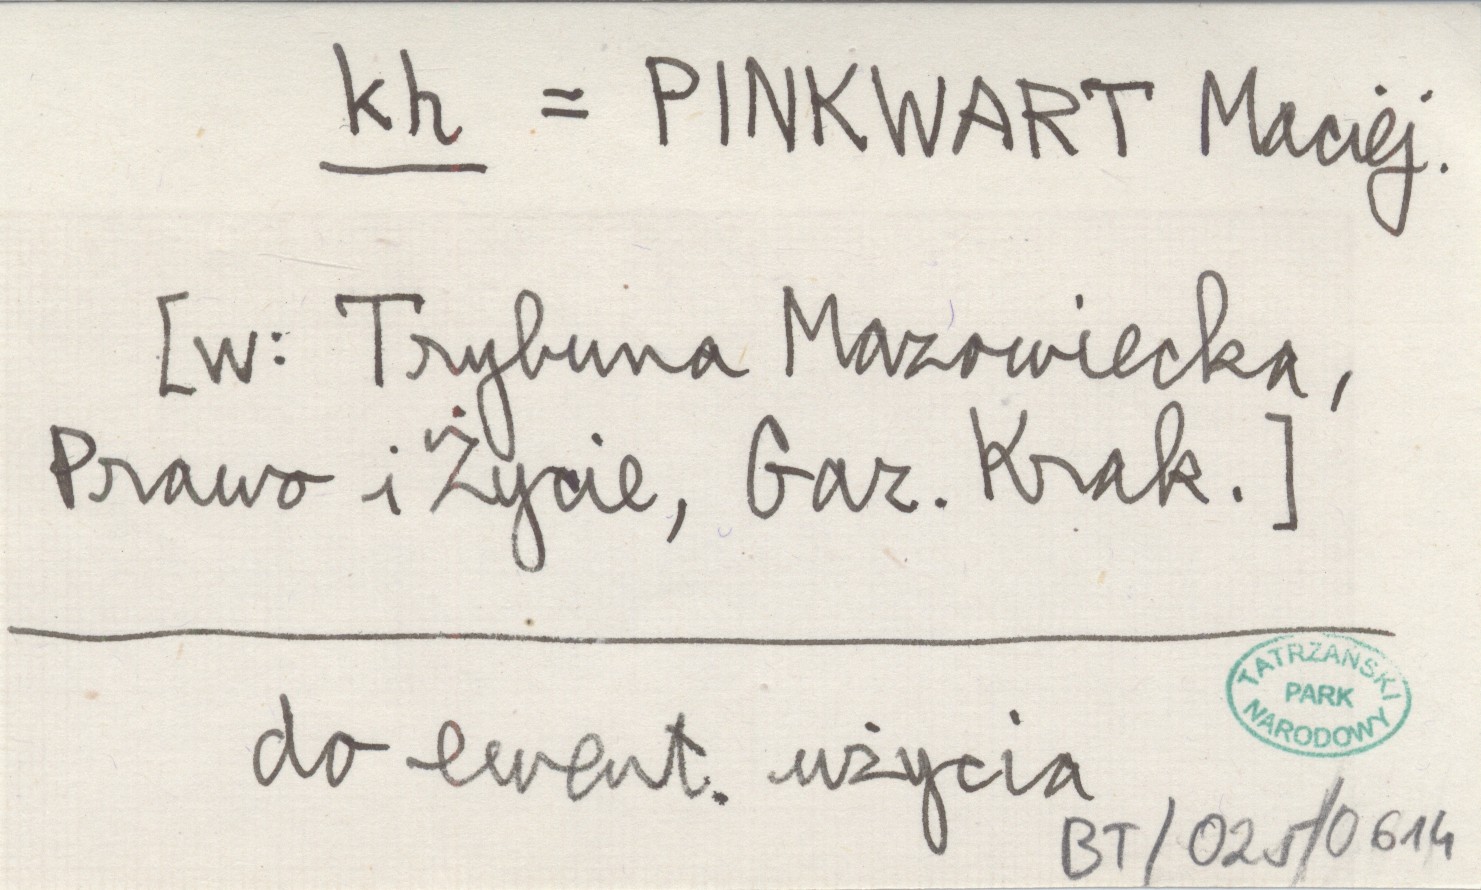 kh = PINKWART Maciej.
[w: Trybuna Mazowiecka,
Prawo i Życie, Gaz. Krak.]
do ewent. użycia
TATRZAŃSKI
PARK
NARODOWY
BT/025/0614